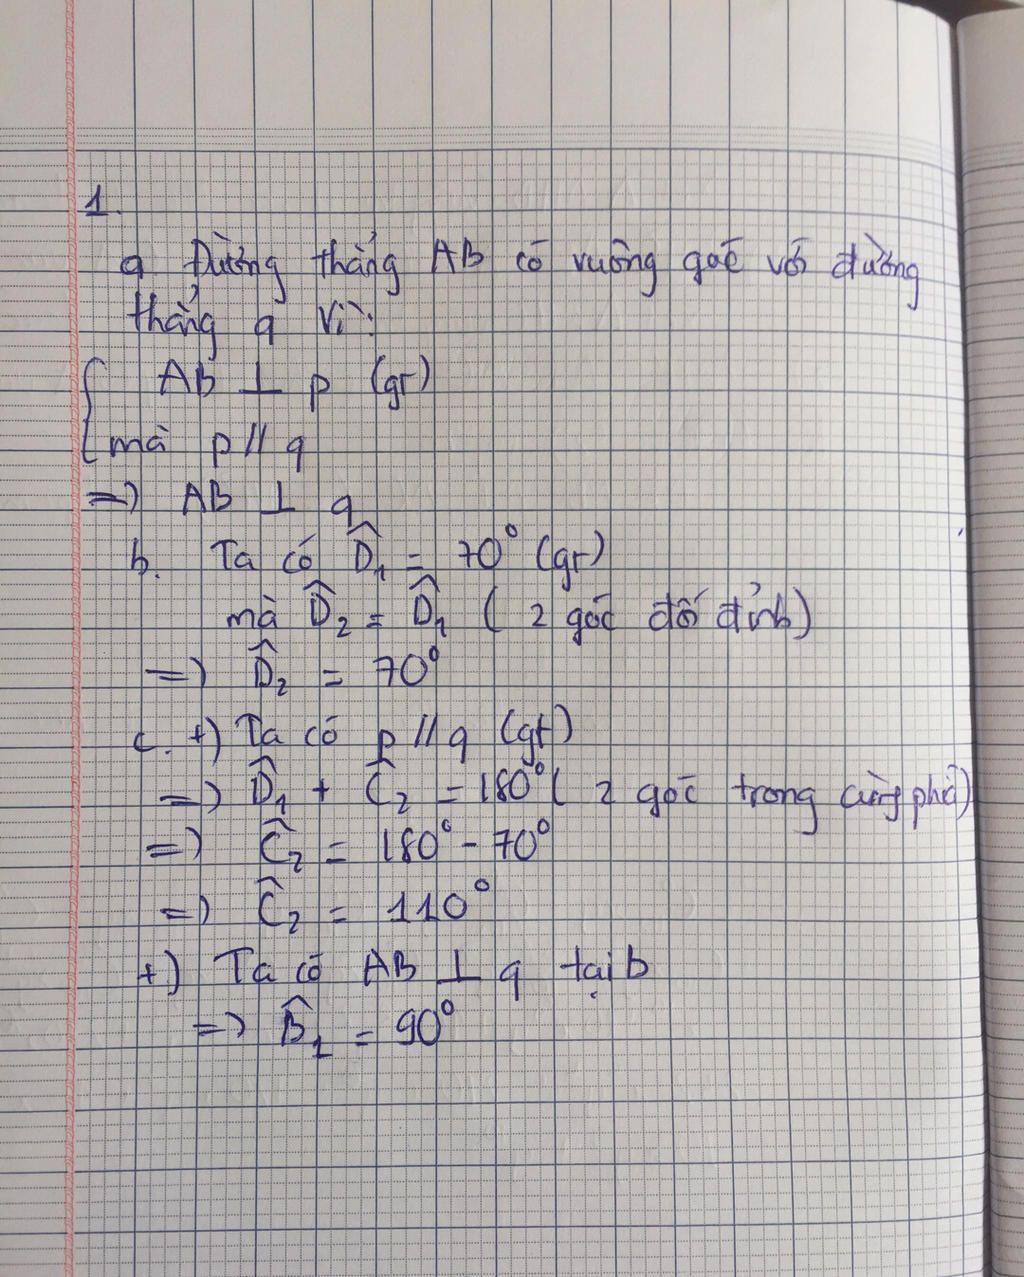 1.
a Đường thẳng AB có vuông góc với đường
thẳng q vì:
AB ⊥ p (gt)
mà p // q
=> AB ⊥ q
b. Ta có D̂₁ = 70° (gt)
mà D̂₂ = D̂₁ ( 2 góc đối đỉnh)
=> D̂₂ = 70°
c. +) Ta có p // q (gt)
=> D̂₁ + Ĉ₂ = 180° ( 2 góc trong cùng phía)
=> Ĉ₂ = 180° - 70°
=> Ĉ₂ = 110°
+) Ta có AB ⊥ q tại b
=> B̂₁ = 90°